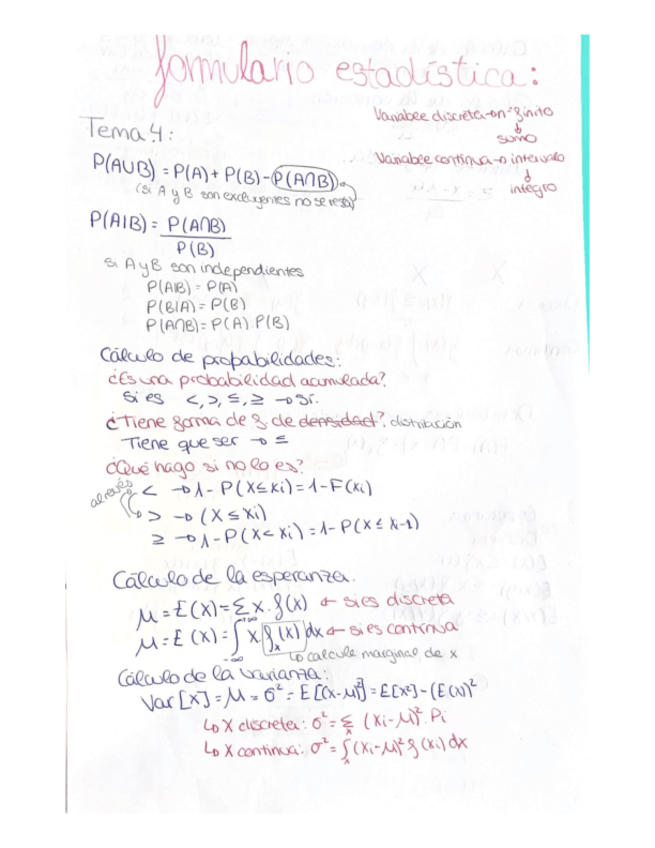 formulario estadística:
Variable discreta → nº finito
↓
suma
Variable continua → intervalo
↓
integro
Tema 4:
P(A∪B) = P(A) + P(B) - P(A∩B)
(si A y B son excluyentes no se resta)
P(A|B) = P(A∩B) / P(B)
si A y B son independientes
P(A|B) = P(A)
P(B|A) = P(B)
P(A∩B) = P(A).P(B)
Cálculo de probabilidades:
¿Es una probabilidad acumulada?
Si es <, >, ≤, ≥ → Sí.
¿Tiene forma de f de densidad? distribución
Tiene que ser → ≤
¿Qué hago si no lo es?
al revés
< → 1 - P(X ≤ xi) = 1 - F(xi)
> → (X ≤ xi)
≥ → 1 - P(X < xi) = 1 - P(X ≤ xi-1)
Cálculo de la esperanza.
μ = E(X) = Σ x · f(x) ← si es discreta
μ = E(X) = ∫ +∞ -∞ x fx(x) dx ← si es continua
↳ calcule marginal de x
Cálculo de la varianza:
Var[X] = μ = σ² = E[(X-μ)²] = E[X²] - (E(X))²
↳ X discreta: σ² = Σ x (xi-μ)². Pi
↳ X continua: σ² = ∫x (xi-μ)² f(xi) dx